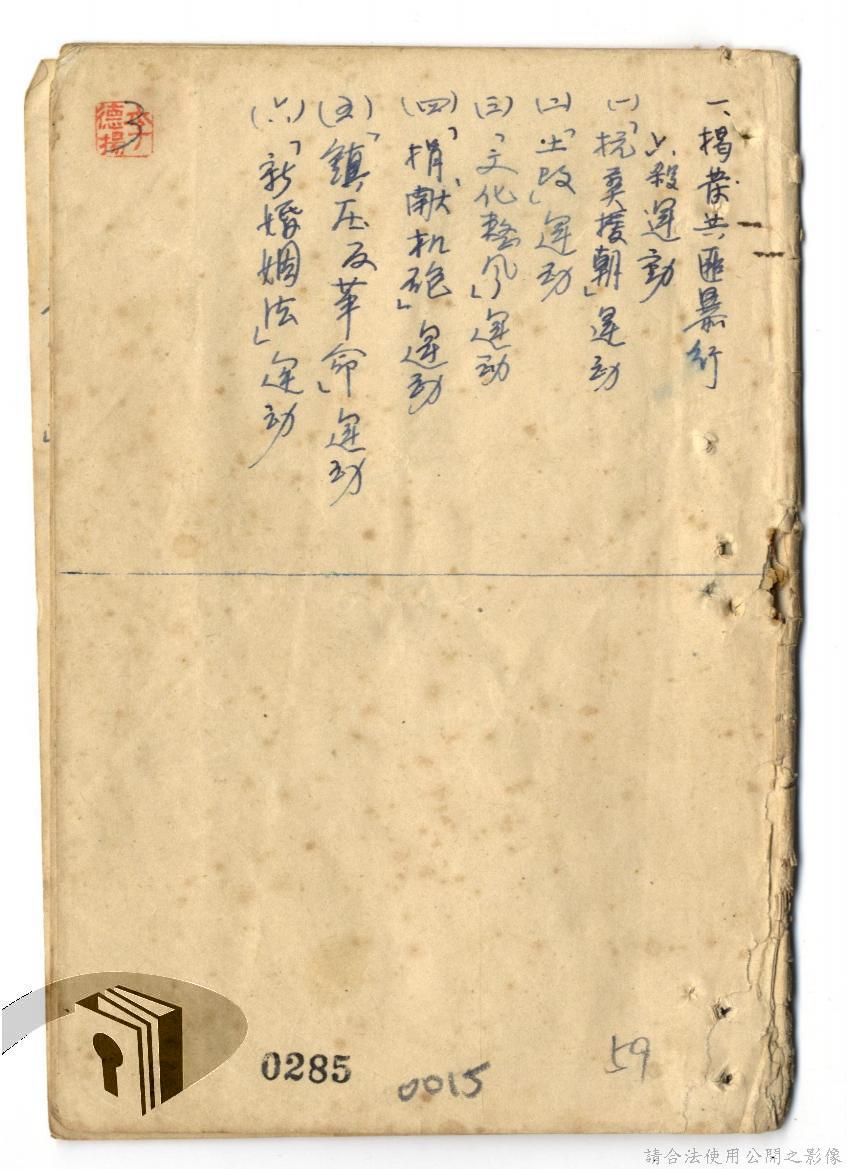 一、揭發共匪暴行
六殺運动
(一)「抗美援朝」運动
(二)「土改」運动
(三)「文化整风」運动
(四)「捐献机砲」運动
(五)「鎮压反革命」運动
(六)「新婚姻法」運动
李德揚
3
0285
0015
59
請合法使用公開之影像